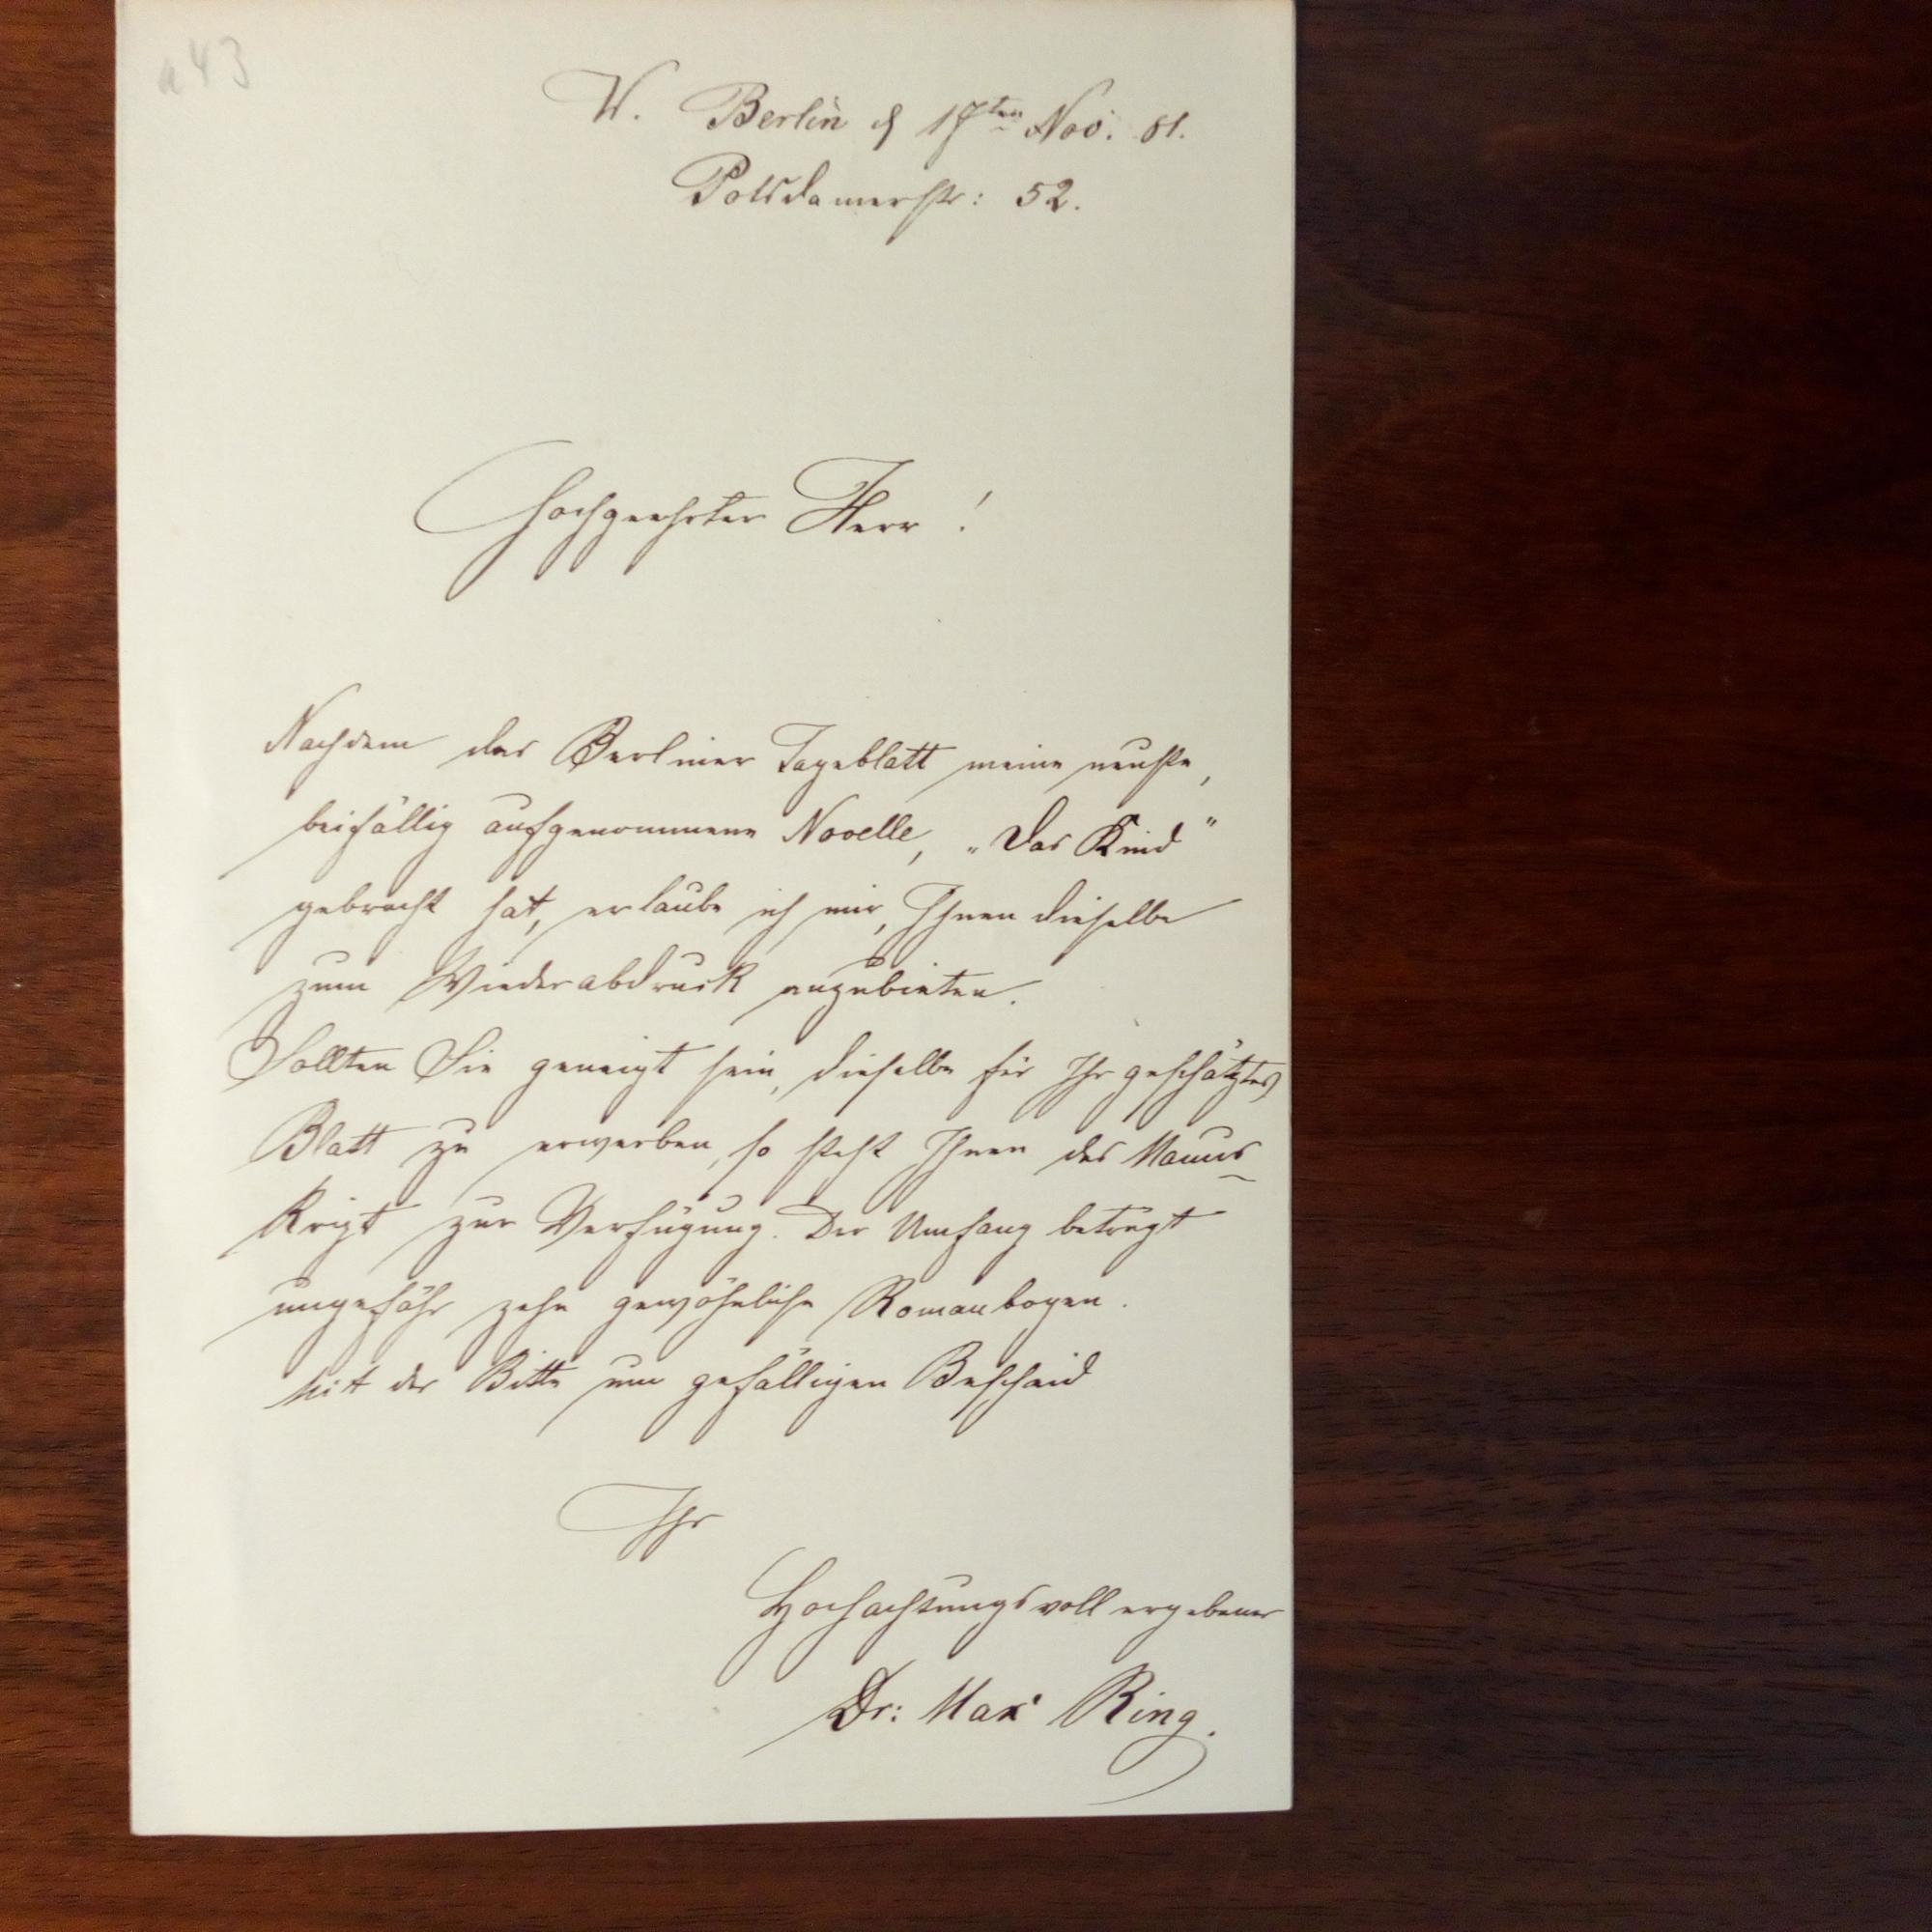 a 43
W. Berlin d 17ten Nov. 81.
Potsdamerstr: 52.
Hochgeehrter Herr!
Nachdem das Berliner Tageblatt meine neuste,
beifällig aufgenommene Novelle, „Das Kind"
gebracht hat, erlaube ich mir, Ihnen dieselbe
zum Wiederabdruck anzubieten.
Sollten Sie geneigt sein, dieselbe für Ihr geschätztes
Blatt zu erwerben, so steht Ihnen das Manus-
kript zur Verfügung. Der Umfang beträgt
ungefähr zehn gewöhnliche Romanbogen.
Mit der Bitte um gefälligen Bescheid
Ihr
Hochachtungsvoll ergebener
Dr: Max Ring.